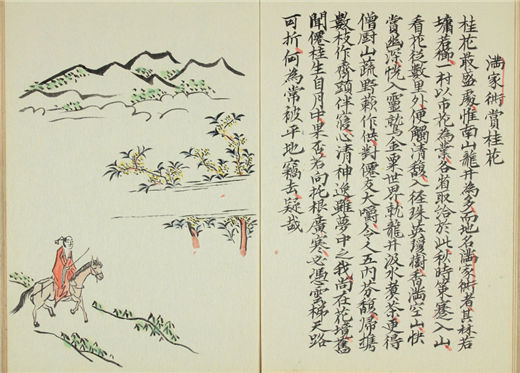 滿家衖賞桂花
桂花最盛處惟南山龍井為多而地名滿家衖者其林若
墉若櫛一村以市花為業各省取給於此秋時策蹇入山
看花從數里外便觸清馥入徑珠英瓊樹香滿空山快
賞幽深恍入靈鷲金粟世界就龍井汲水煮茶更得
僧廚山蔬野蔌作供對僊友大嚼令人五內芬馥歸攜
數枝作齋頭伴寢心清神逸雖夢中之我尚在花境舊
聞僊桂生自月中果否若向托根廣寒必憑雲梯天路
可折何為常被平地竊去疑哉